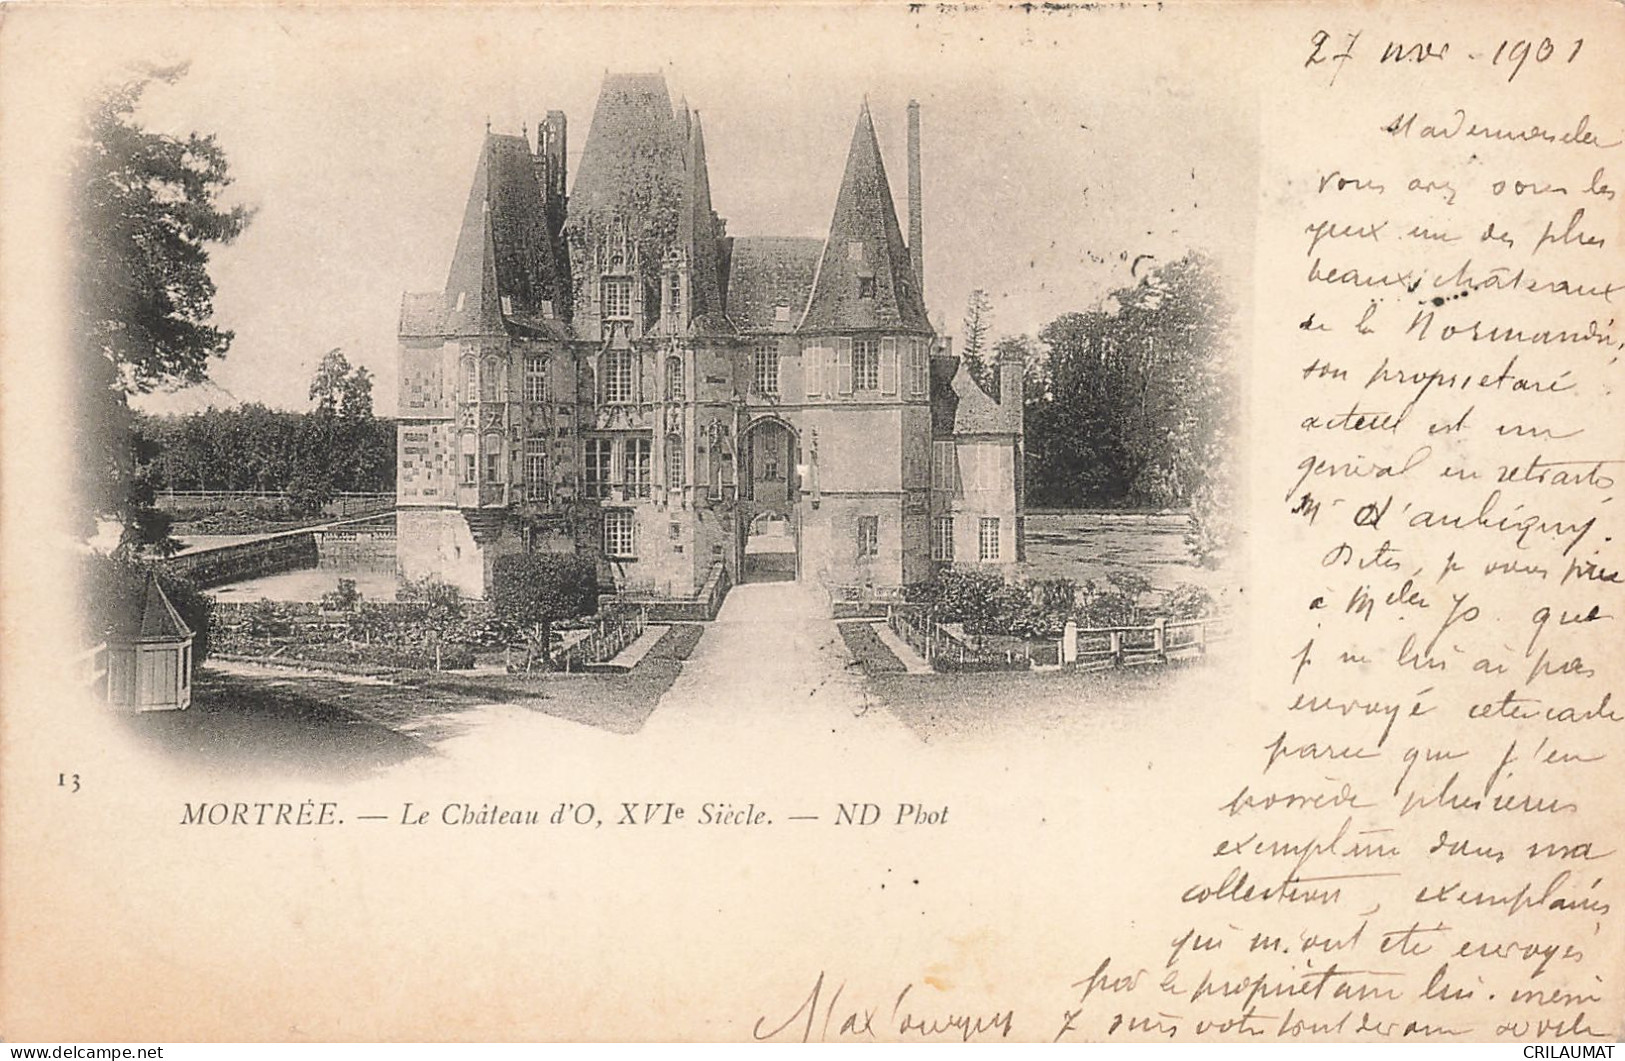 27 nov - 1901
Mademoiselle
vous avez sous les
yeux un des plus
beaux châteaux
de la Normandie,
son propriétaire
actuel est un
général en retraite
Mr d'aubigny.
Dites, je vous prie
à Melle que
je ne lui ai pas
envoyé cette carte
parce que j'en
possède plusieurs
exemplaires dans ma
collection, exemplaires
qui m'ont été envoyés
par le propriétaire lui-même
suis votre tout dévoué
13
MORTRÉE. — Le Château d'O, XVIe Siècle. — ND Phot
CRILAUMAT